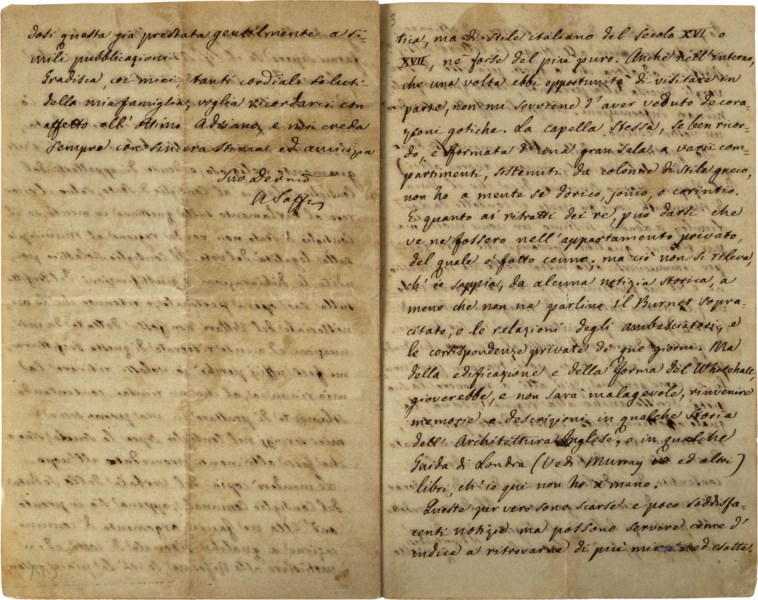 dosi questa già prestata gentilmente a si-
mili pubblicazioni
Gradisca, coi miei, tanti cordiali saluti
della mia famiglia, voglia ricordarci con
affetto all' ottimo Adriano, e mi creda
sempre con sincera stima ed amicizia
Suo Devmo
A Saffi
tica, ma di stile italiano del Secolo XVI o
XVII, nè forse del più puro. Anche nell' interno,
che una volta ebbi opportunità di visitare in
parte, non mi sovviene d' aver veduto decora-
zioni gotiche. La capella stessa, se ben ricor-
do, è formata di una gran sala a varii com-
partimenti, sostenuti da colonne di stile greco,
non ho a mente se dorico, jonico, o corintio.
E quanto ai ritratti dei re, può darsi che
ve ne fossero nell' appartamento privato,
del quale è fatto cenno; ma ciò non si rileva,
ch' io sappia, da alcuna notizia storica, a
meno che non ne parlino il Burnet sopra-
citato, o le relazioni degli ambasciatori, e
le corrispondenze private di que' giorni. Ma
della edificazione e della forma del Whitehall,
gioverebbe, e non sarà malagevole, rinvenire
memorie o descrizioni in qualche storia
dell' Architettura Inglese, o in qualche
Guida di Londra (Vedi Murray ed altri)
libri, ch' io qui non ho a mano.
Queste per vero sono scarse e poco soddisfa-
centi notizie ma possono servire come d'
indice a ritrovarne di più ed esatte.